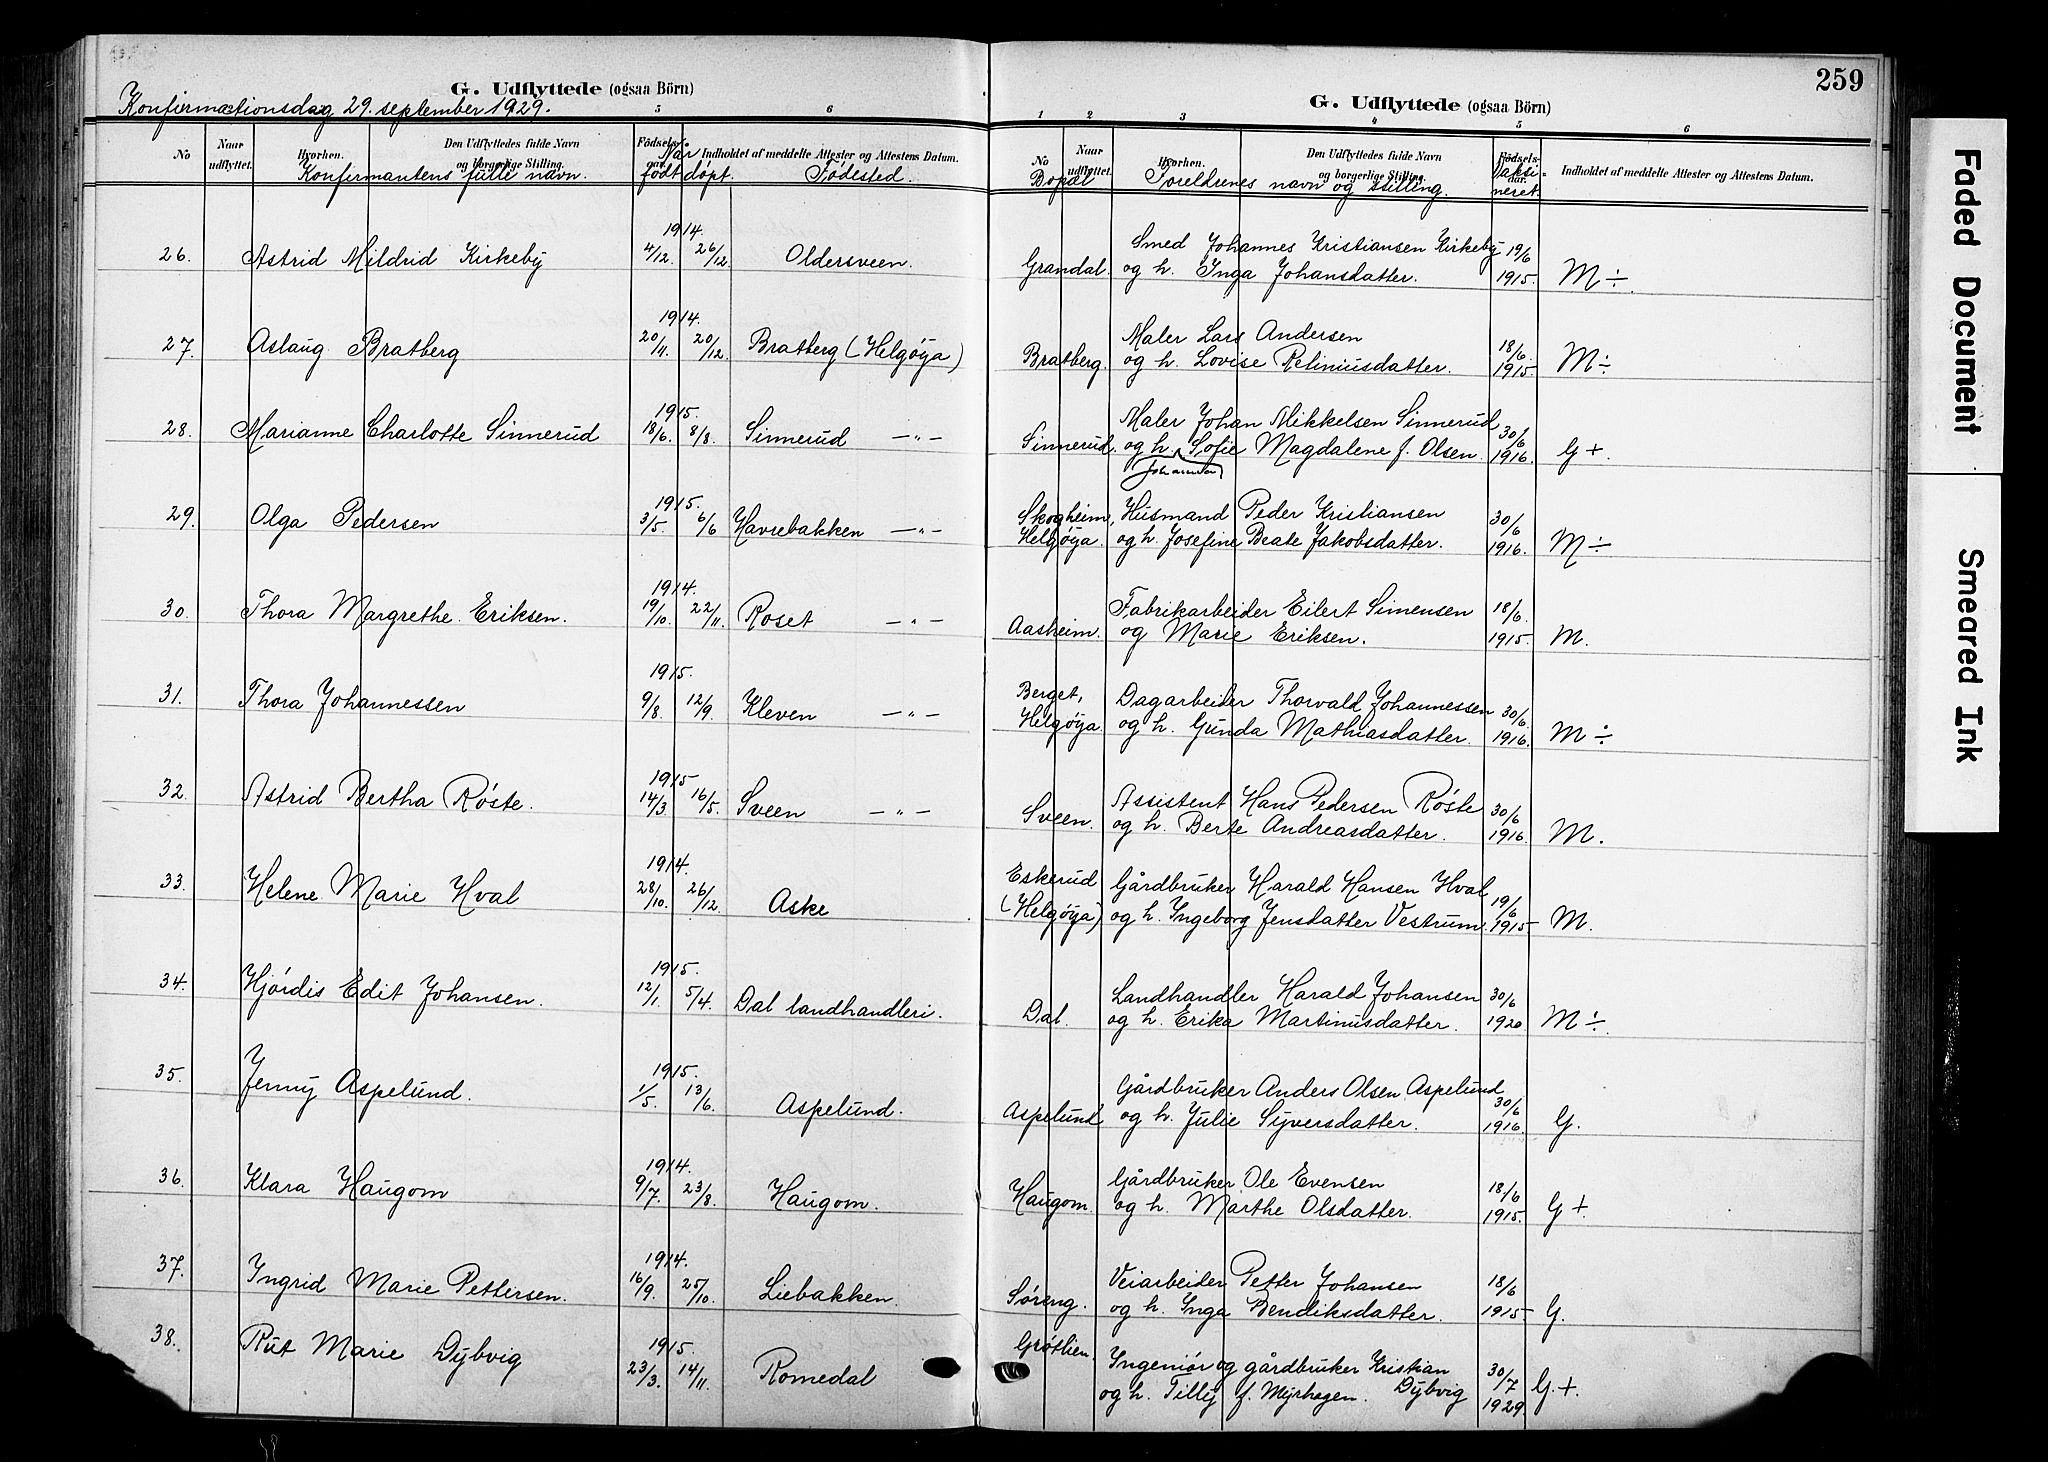 G. Udflyttede (ogsaa Börn)
Konfirmationsdag 29. september 1929.
5 6
No Naar udflyttet. Hvorhen. Den Udflyttedes fulde Navn og borgerlige Stilling. Fødsels-aar. Indholdet af meddelte Attester og Attestens Datum.
Konfirmantens fulle navn. Når født døpt. Fødested.
259
G. Udflyttede (ogsaa Börn)
1 2 3 4 5 6
No Naar udflyttet. Hvorhen. Den Udflyttedes fulde Navn og borgerlige Stilling. Fødsels-aar. Indholdet af meddelte Attester og Attestens Datum.
Bopæl Foreldrenes navn og stilling. Vaksi-neret.
1914.
26. Astrid Mildrid Kirkeby 4/12. 26/12. Oldersveen.
Smed Johannes Kristiansen Kirkeby 19/6
Grandal. og h. Inga Johansdatter. 1915. M ÷.
1914.
27. Aslaug Bratberg 20/11. 20/12. Bratberg (Helgøya)
Maler Lars Andersen 18/6.
Bratberg. og h. Lovise Reliniusdatter. 1915. M ÷
1915.
28. Marianne Charlotte Sinnerud 18/6. 8/8. Sinnerud —"—
Maler Johan Mikkelsen Sinnerud 30/6
Sinnerud. og h. Sofie Magdalene f. Olsen. 1916. G +.
Johannsen
1915.
29. Olga Pedersen 3/5. 6/6 Havrebakken —"—
Skogheim, Husmand Peder Kristiansen 30/6
Helgøya. og h. Josefine Beate Jakobsdatter. 1916. M ÷
1914.
30. Thora Margrethe Eriksen. 19/10. 22/11. Roset —"—
Fabrikarbeider Eilert Simensen 18/6.
Aasheim. og Marie Eriksen. 1915. M.
1915.
31. Thora Johannessen 9/8. 12/9. Kleven —"—
Berget, Dagarbeider Thorvald Johannessen 30/6.
Helgøya og h. Gunda Mathiasdatter. 1916. M ÷
1915
32. Astrid Bertha Røste. 14/3 16/5. Sveen —"—
Assistent Hans Pedersen Røste 30/6
Sveen. og h. Berte Andreasdatter. 1916. M.
1914.
33. Helene Marie Hval 28/10. 26/12. Aske
Eskerud Gårdbruker Harald Hansen Hval 19/6
(Helgøya) og h. Ingeborg Jensdatter Vestrum. 1915 M.
1915.
34. Hjördis Edit Johansen. 12/1. 5/4. Dal landhandleri.
Landhandler Harald Johansen 30/6
Dal. og h. Erika Martinusdatter. 1920 M ÷.
1915.
35. Jenny Aspelund. 1/5. 13/6. Aspelund.
Gårdbruker Anders Olsen Aspelund 30/6
Aspelund og h. Julie Syversdatter. 1916. G.
1914.
36. Klara Haugom 9/7. 23/8. Haugom.
Gårdbruker Ole Evensen 18/6
Haugom. og h. Marthe Olsdatter. 1915. G +.
1914.
37. Ingrid Marie Pettersen. 16/9. 25/10. Liebakken.
Veiarbeider Petter Johansen 18/6
Søreng. og h. Inga Bendiksdatter. 1915 G.
1915.
38. Rut Marie Dybvig 23/3. 14/11. Romedal
Grøtlien. Ingeniør og gårdbruker Kristian 30/7
og h. Tilly f. Myrhagen. Dybvig 1929. G. +.
Faded Document
Smeared Ink